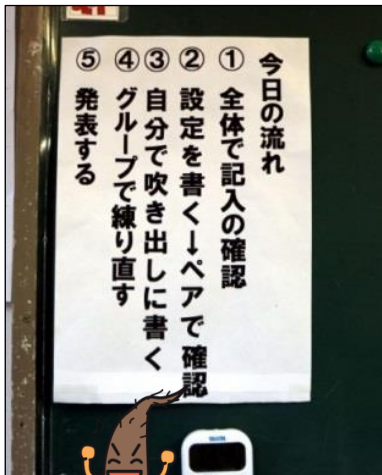 今日の流れ
① 全体で記入の確認
② 設定を書く→ペアで確認
③ 自分で吹き出しに書く
④ グループで練り直す
⑤ 発表する